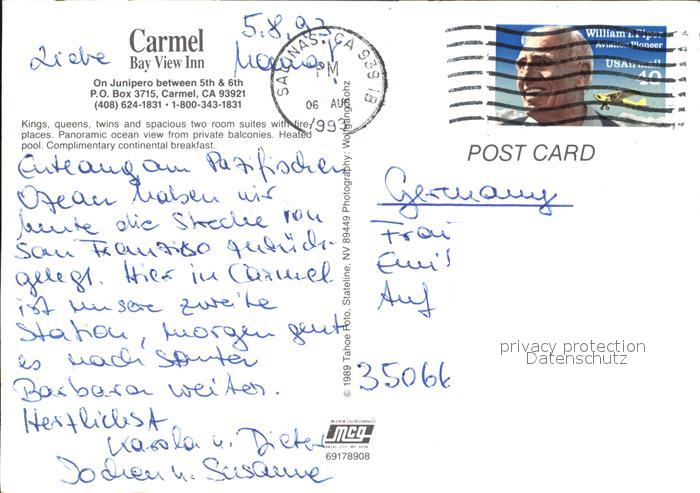 5.8.93
Liebe Mama!
Carmel
Bay View Inn
On Junipero between 5th & 6th
P.O. Box 3715, Carmel, CA 93921
(408) 624-1831 • 1-800-343-1831
Kings, queens, twins and spacious two room suites with fire-
places. Panoramic ocean view from private balconies. Heated
pool. Complimentary continental breakfast.
Entlang am Pazifischen
Ozean haben wir
heute die Strecke von
San Franzisco zurück-
gelegt. Hier in Carmel
ist unsere zweite
Station, morgen geht
es nach Santa
Barbara weiter.
Herzlichst
Karola u. Dieter
Jochen u. Susanne
SALINAS, CA 939
PM
06 AUG
1993
William T. Piper
Aviation Pioneer
USAirmail
40
POST CARD
Germany
Frau
Emi
Auf
35066
privacy protection
Datenschutz
© 1989 Tahoe Foto, Stateline, NV 89449 Photography: Wolfgang
mcg
69178908